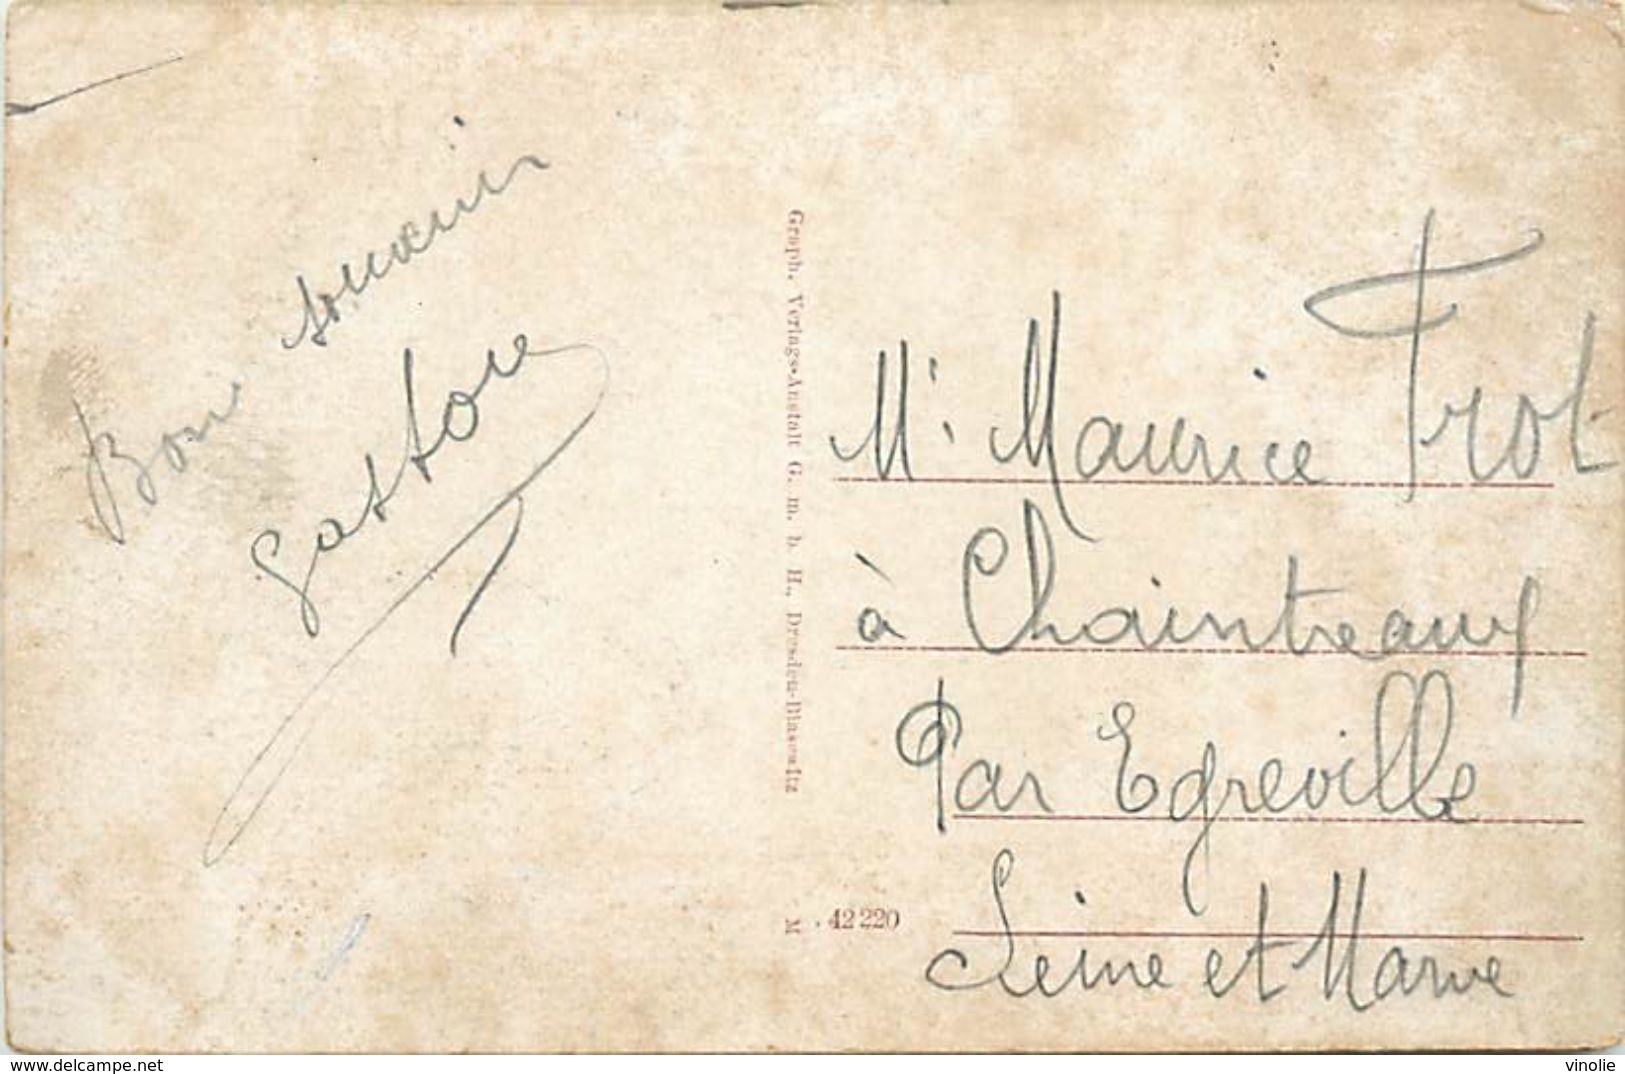 Bon souvenir
Gaston
Graph. Verlags-Anstalt G. m. b. H., Dresden-Blasewitz
M
42220
Mr Maurice Frot
à Chaintreaux
Par Egreville
Seine et Marne
www.delcampe.net
vinolie